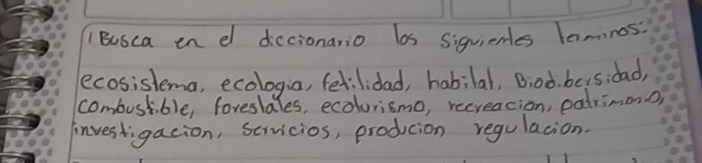 1 Busca en el diccionario los siguientes terminos:
ecosistema, ecologia, fetilidad, habital, Biodibersidad,
combustible, forestales, ecoturismo, recreacion, patrimonio,
investigacion, servicios, producion regulacion.